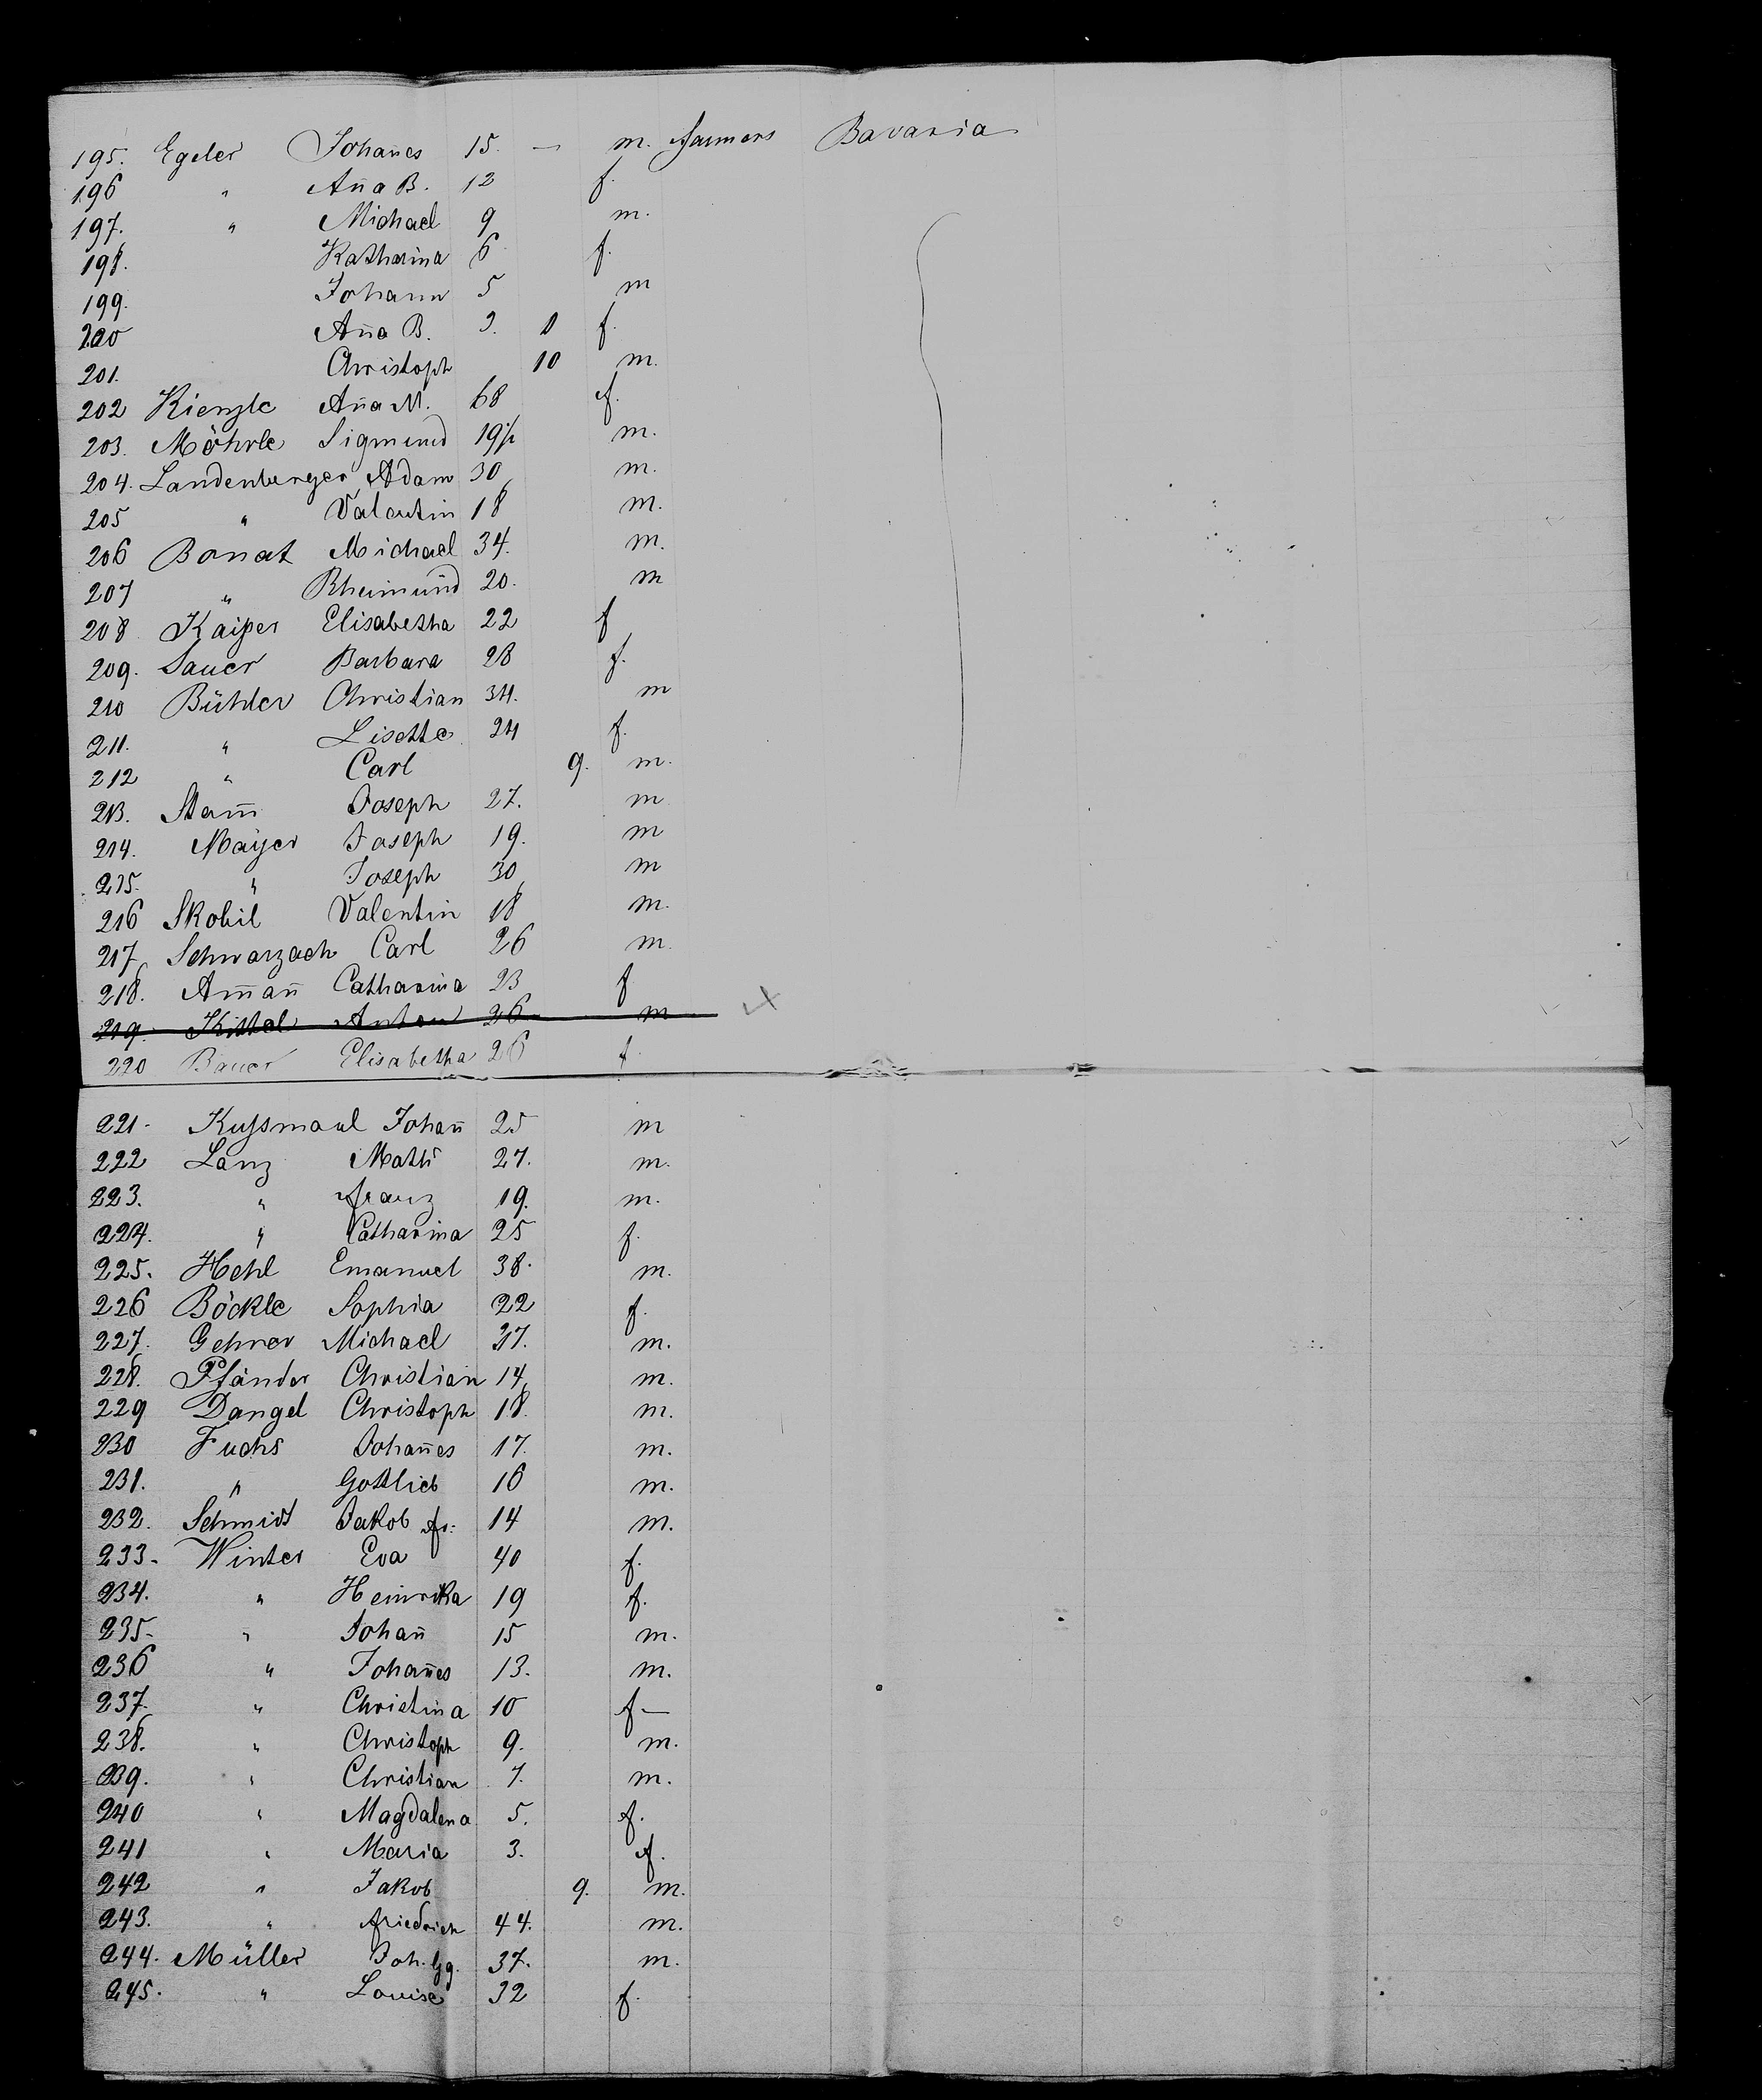 195. Egeler Johañes 15. — m. Farmers Bavaria
196 " Aña B. 12 f.
197. " Michael 9 m.
198. Katharina 6 f.
199. Johann 5 m
200 Aña B. f.
201. Christoph 10 m.
202 Kienzle Aña M. 68 f.
203. Möhrle Sigmund m.
204. Landenberger Adam 30 m.
205 " Valentin 18 m.
206 Bonat Michael 34. m.
207 " Rheimund 20. m
208 Kaiper Elisabetha 22 f
209. Sauer Barbara 28 f.
210 Bühler Christian 34. m
211. " Lisette 24 f.
212 " Carl 9. m.
213. Stam̄ Joseph 27. m
214. Maijer Joseph 19. m
215. " Joseph 30 m
216 Skobil Valentin 18 m.
217 Schwarzach Carl 26 m.
218. Am̄añ Catharina 23 f
219. Kittel Anton 26 m
220 Bauer Elisabetha 26 f.
221. Kussmaul Johañ 25 m
222 Lanz Maths 27. m.
223. " Franz 19. m.
224. " Catharina 25 f.
225. Hehl Emanuel 38. m.
226 Böckle Sophia 22 f.
227. Gehrer Michael m.
228. Pfänder Christian 14 m.
229 Dangel Christoph 18. m.
230 Fuchs Johañes 17. m.
231. " Gottlieb 16 m.
232. Schmidt Jakob Fr. 14 m.
233. Winter Eva 40 f.
234. " Heinrika 19 f.
235. " Johañ 15 m.
236 " Johañes 13. m.
237. " Christina 10 f —
238. " Christoph 9. m.
239. " Christian 7. m.
240 " Magdalena 5. f.
241 " Maria 3. f.
242 " Jakob 9. m.
243. " Friedrich 44. m.
244. Müller Joh. Gg. 37. m.
245. " Louise 32 f.